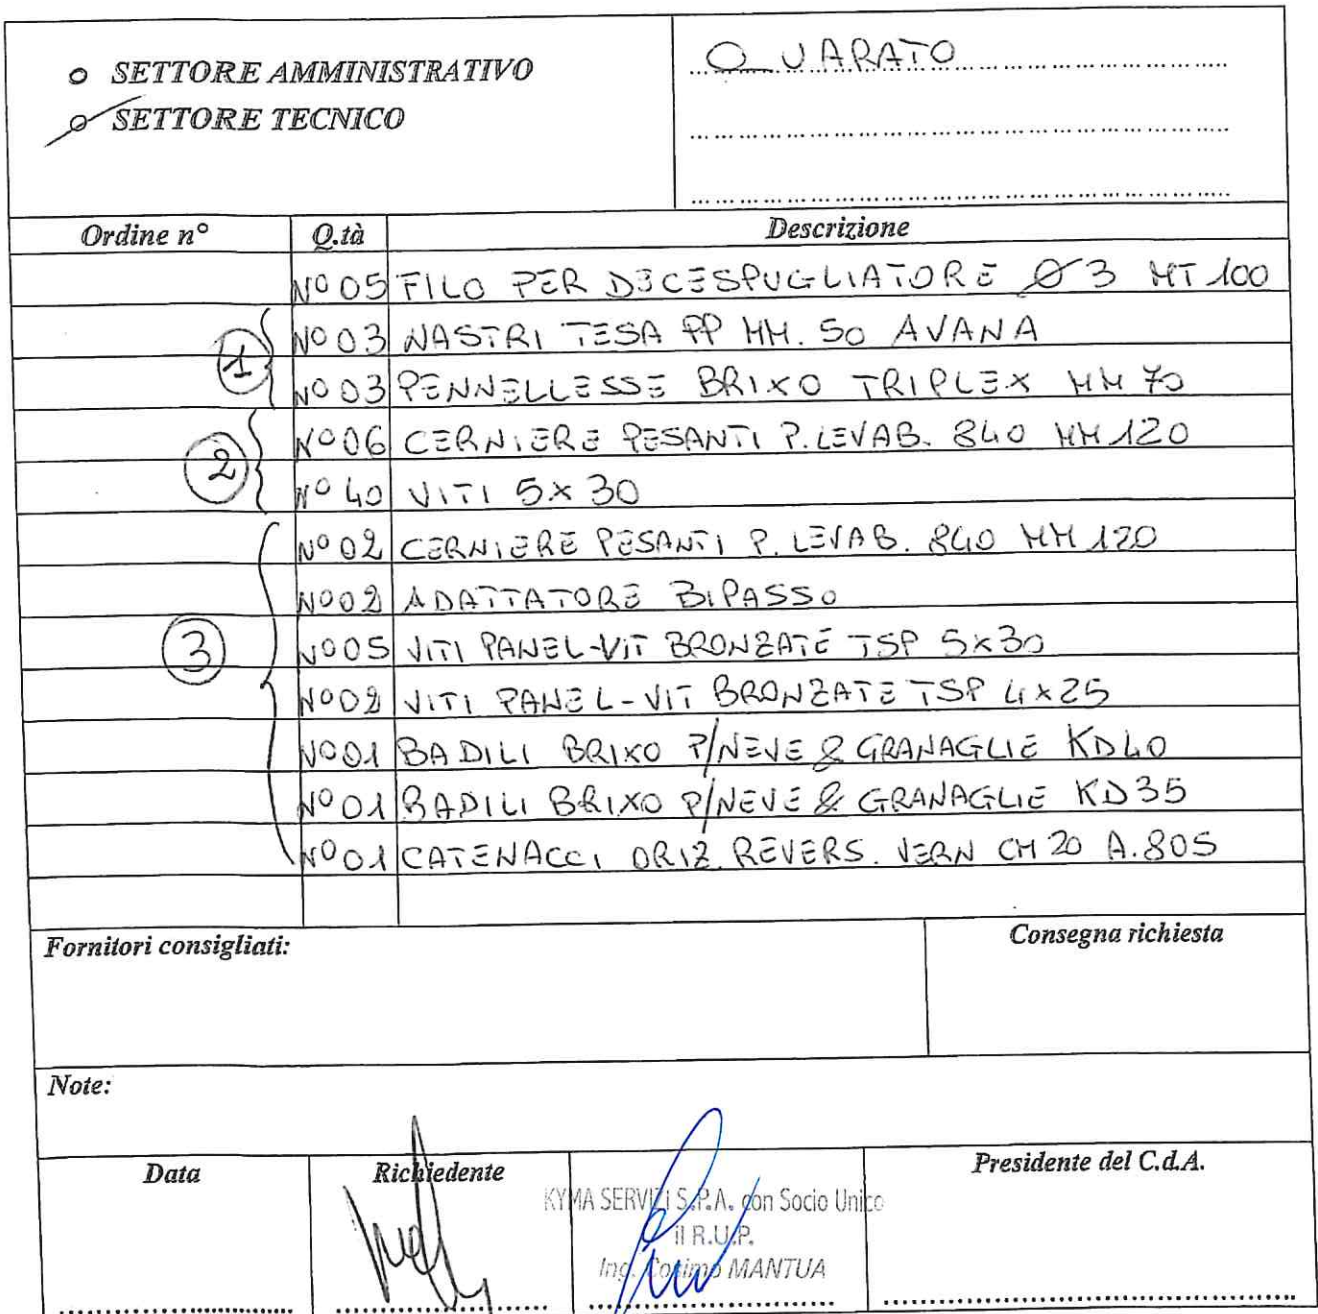 o SETTORE AMMINISTRATIVO
o SETTORE TECNICO
VARATO
Ordine n° Q.tà Descrizione
N° 05 FILO PER DECESPUGLIATORE Ø 3 MT 100
N° 03 NASTRI TESA PP MM. 50 AVANA
1
N° 03 PENNELLESSE BRIXO TRIPLEX MM 70
N° 06 CERNIERE PESANTI P. LEVAB. 840 MM 120
2
N° 40 VITI 5x30
N° 02 CERNIERE PESANTI P. LEVAB. 840 MM 120
N° 02 ADATTATORE BIPASSO
3
N° 05 VITI PANEL-VIT BRONZATE TSP 5x30
N° 02 VITI PANEL-VIT BRONZATE TSP 4x25
N° 01 BADILI BRIXO P/NEVE & GRANAGLIE KD40
N° 01 BADILI BRIXO P/NEVE & GRANAGLIE KD35
N° 01 CATENACCI ORIZ. REVERS. VERN CM 20 A.805
Fornitori consigliati: Consegna richiesta
Note:
Data Richiedente Presidente del C.d.A.
KYMA SERVIZI S.P.A. con Socio Unico
il R.U.P.
Ing. Cosimo MANTUA